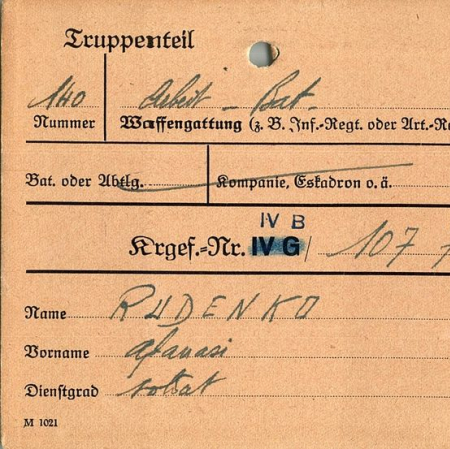 Truppenteil
140 Arbeit - Bat.
Nummer Waffengattung (z. B. Inf.-Regt. oder Art.-Re
Bat. oder Abtlg. Kompanie, Eskadron o. ä.
IV B
Krgef.-Nr. IV G/ 107
Name RUDENKO
Vorname Afanasi
Dienstgrad soldat
M 1021